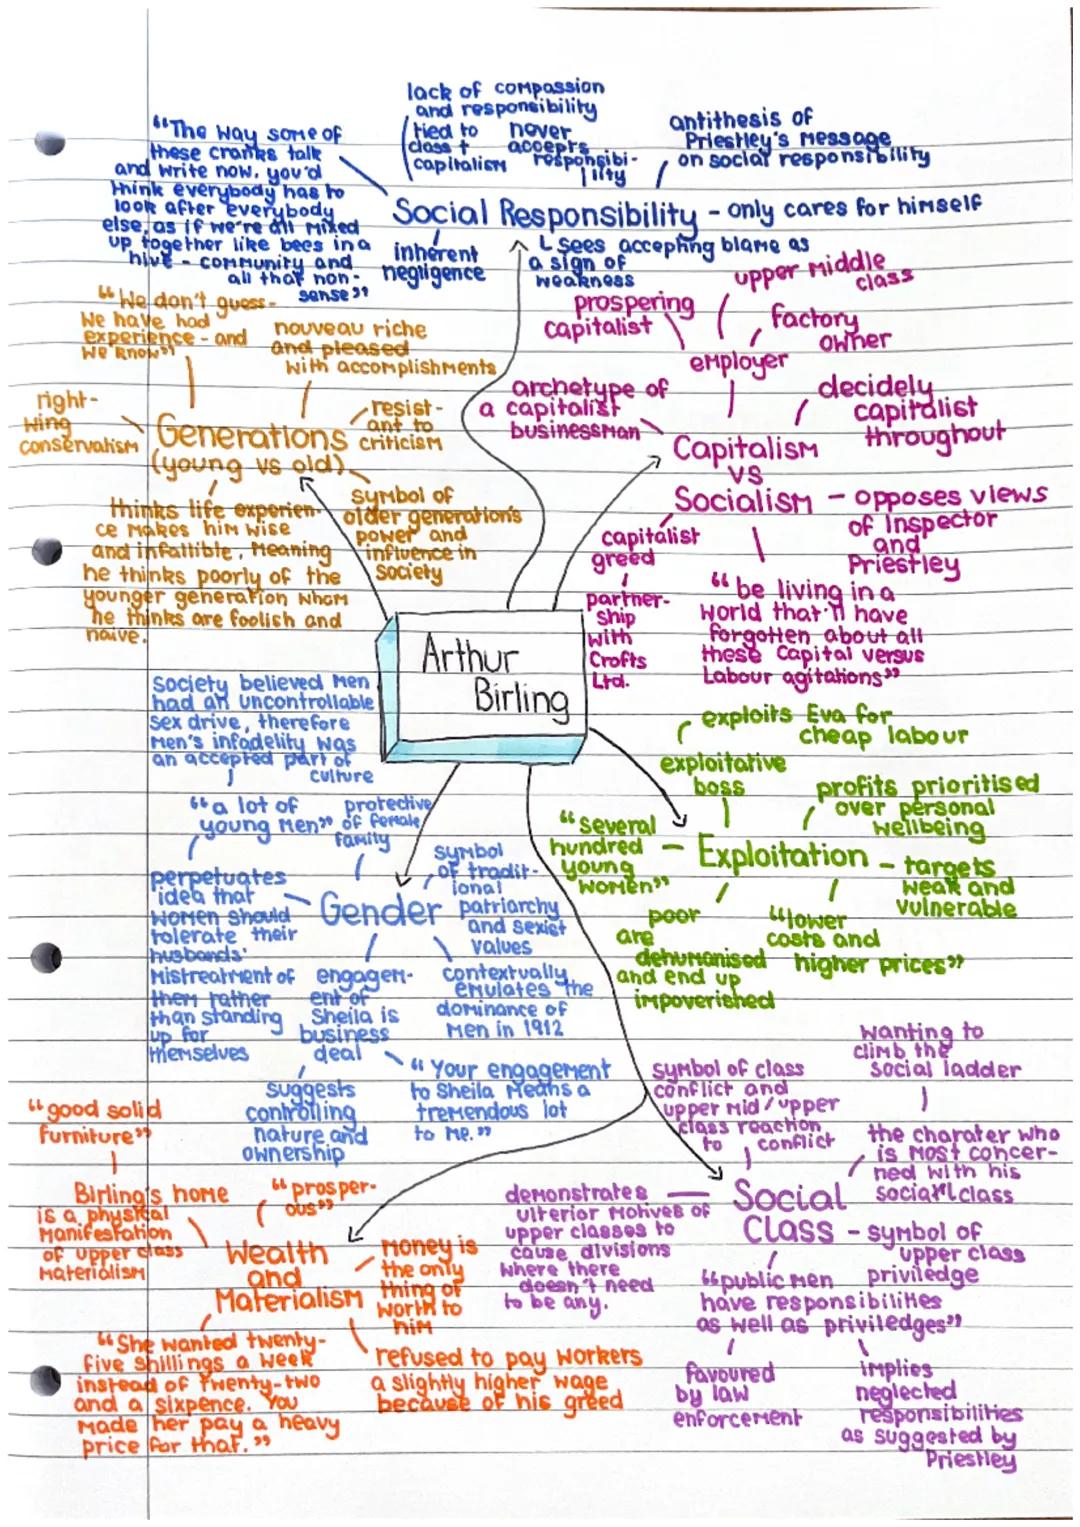 lack of compassion
and responsibility
tied to
class +
capitalism
never
accepts
responsibi-
lity
antithesis of
Priestley's message
on social responsibility
"The way some of
these cranks talk
and write now, you'd
think everybody has to
look after everybody
else, as if we're all mixed
up together like bees in a
hive - community and
all that non-
sense"
Social Responsibility - only cares for himself
inherent
negligence
sees accepting blame as
a sign of
weakness
"We don't guess-
we have had
experience - and
we know"
nouveau riche
and pleased
with accomplishments
right-
wing
conservatism
resist-
ant to
criticism
Generations
(young vs old)
thinks life experien-
ce makes him wise
and infallible, meaning
he thinks poorly of the
younger generation whom
he thinks are foolish and
naive.
symbol of
older generation's
power and
influence in
society
prospering
capitalist
upper middle
class
factory
owner
employer
archetype of
a capitalist
businessman
decidely
capitalist
throughout
Capitalism
vs
Socialism - opposes views
of Inspector
and
Priestley
capitalist
greed
partner-
ship
with
Crofts
Ltd.
"be living in a
world that'll have
forgotten about all
these Capital versus
Labour agitations"
Arthur
Birling
society believed men
had an uncontrollable
sex drive, therefore
men's infadelity was
an accepted part of
culture
"a lot of
young men"
protective
of female
family
symbol
of tradit-
ional
patriarchy
and sexist
values
perpetuates
idea that
women should
tolerate their
husbands'
mistreatment of
them rather
than standing
up for
themselves
Gender
engagem-
ent of
Sheila is
business
deal
contextually
emulates the
dominance of
men in 1912
suggests
controlling
nature and
ownership
"Your engagement
to Sheila means a
tremendous lot
to me."
exploits Eva for
cheap labour
exploitative
boss
profits prioritised
over personal
wellbeing
"several
hundred
young
women"
Exploitation - targets
weak and
vulnerable
poor
are
dehumanised
and end up
impoverished
"lower
costs and
higher prices"
wanting to
climb the
social ladder
symbol of class
conflict and
upper mid/upper
class reaction
to conflict
the charater who
is most concer-
ned with his
social class
demonstrates
ulterior motives of
upper classes to
cause divisions
where there
doesn't need
to be any.
Social
Class - symbol of
upper class
priviledge
"public men
have responsibilities
as well as priviledges"
favoured
by law
enforcement
implies
neglected
responsibilities
as suggested by
Priestley
"good solid
furniture"
Birling's home
is a physical
manifestation
of upper class
materialism
"prosper-
ous"
Wealth
and
Materialism
money is
the only
thing of
worth to
him
"She wanted twenty-
five shillings a week
instead of twenty-two
and a sixpence. You
made her pay a heavy
price for that."
refused to pay workers
a slightly higher wage
because of his greed